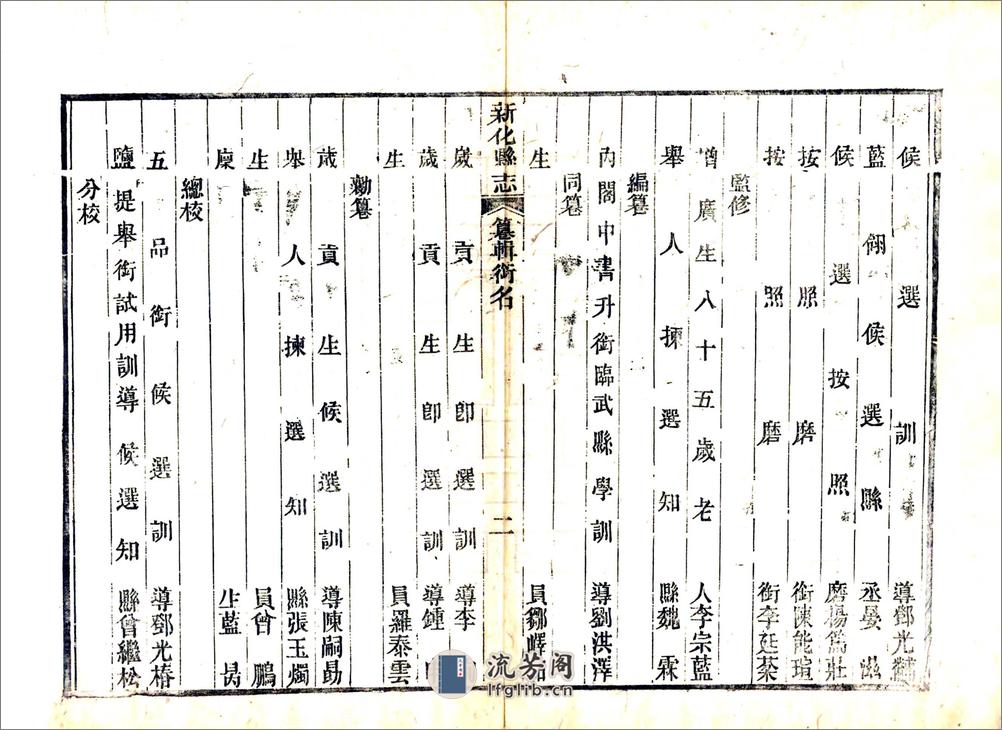 候選訓導鄧光黼
藍翎候選縣丞晏
候選按照磨楊爲壯
按照磨銜陳能瑄
按照磨銜李廷棻
監修
增廣生八十五歲老人李宗藍
舉人揀選知縣魏霖
編纂
內閣中書升銜臨武縣學訓導劉洪澤
同纂
生員鄒嶧
新化縣志
纂輯銜名
二
歲貢生卽選訓導李
歲貢生卽選訓導鍾
生員羅泰雲
勷纂
歲貢生候選訓導陳嗣勗
舉人揀選知縣張玉燭
生員曾鵬
廩生藍
總校
五品銜候選訓導鄧光椿
鹽提舉銜試用訓導候選知縣曾繼松
分校
流芳阁
lfglib.cn